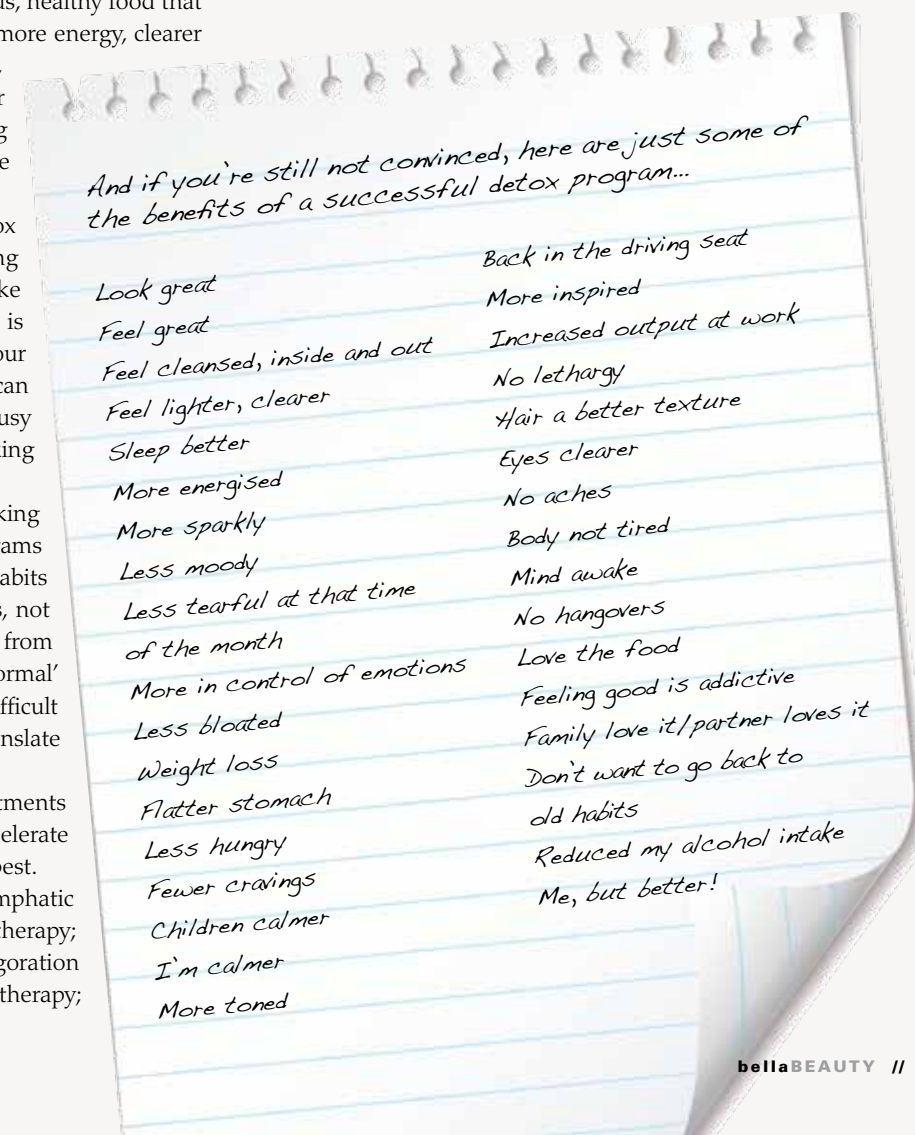 us, healthy food that
more energy, clearer
r
g
e
ox
ng
ke
is
our
can
usy
king
king
rams
abits
s, not
from
ormal'
fficult
nslate
tments
elerate
best.
mphatic
therapy;
goration
therapy;
And if you're still not convinced, here are just some of
the benefits of a successful detox program...
Look great
Feel great
Feel cleansed, inside and out
Feel lighter, clearer
Sleep better
More energised
More sparkly
Less moody
Less tearful at that time
of the month
More in control of emotions
Less bloated
Weight loss
Flatter stomach
Less hungry
Fewer cravings
Children calmer
I'm calmer
More toned
Back in the driving seat
More inspired
Increased output at work
No lethargy
Hair a better texture
Eyes clearer
No aches
Body not tired
Mind awake
No hangovers
Love the food
Feeling good is addictive
Family love it/partner loves it
Don't want to go back to
old habits
Reduced my alcohol intake
Me, but better!
bellaBEAUTY //